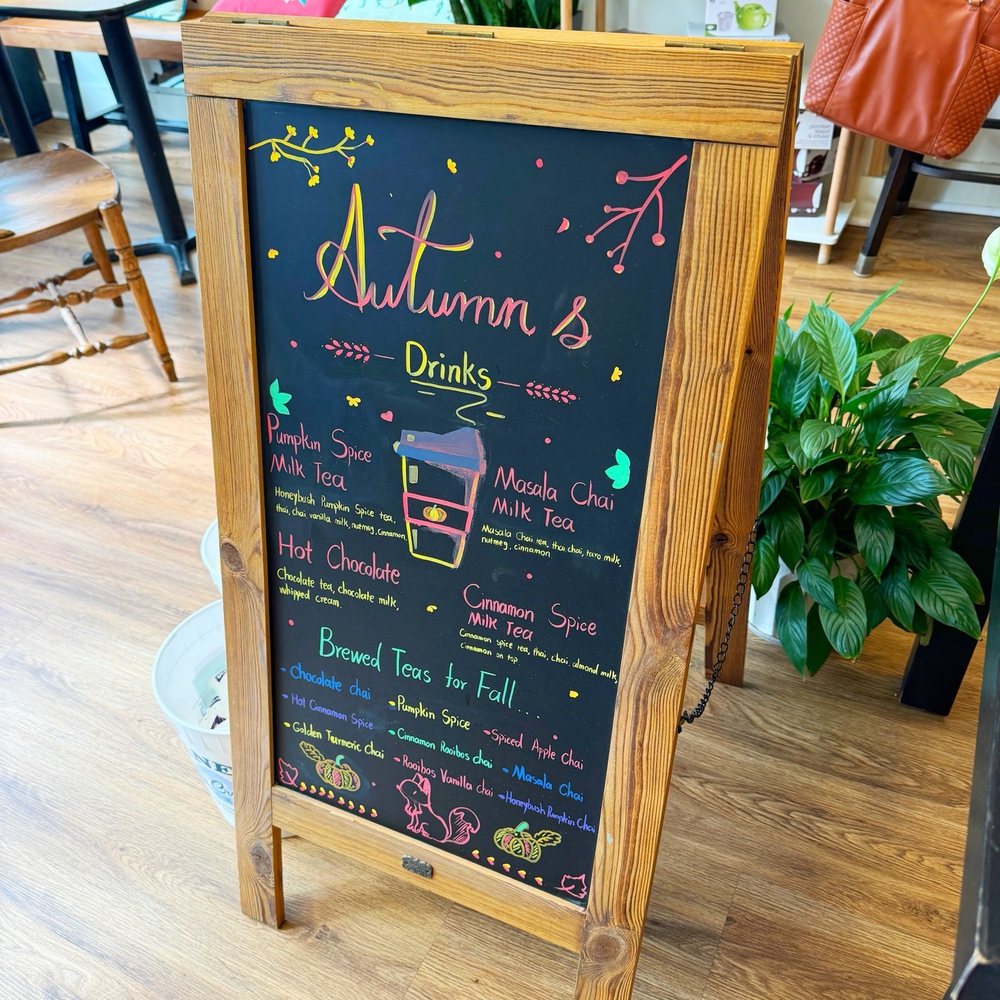 Autumn s
Drinks
Pumpkin Spice
Milk Tea
Honeybush Pumpkin Spice tea,
thai, chai, vanilla milk, nutmeg, cinnamon
Masala Chai
Milk Tea
Masala Chai tea, thai chai, taro milk,
nutmeg, cinnamon
Hot Chocolate
Chocolate tea, chocolate milk,
whipped cream
Cinnamon Spice
Milk Tea
Cinnamon spice tea, thai, chai, almond milk,
cinnamon on top
Brewed Teas for Fall....
- Chocolate chai
- Hot Cinnamon Spice
- Golden Turmeric Chai
- Pumpkin Spice
- Cinnamon Rooibos chai
- Rooibos Vanilla chai
- Spiced Apple chai
- Masala Chai
- Honeybush Pumpkin Chai